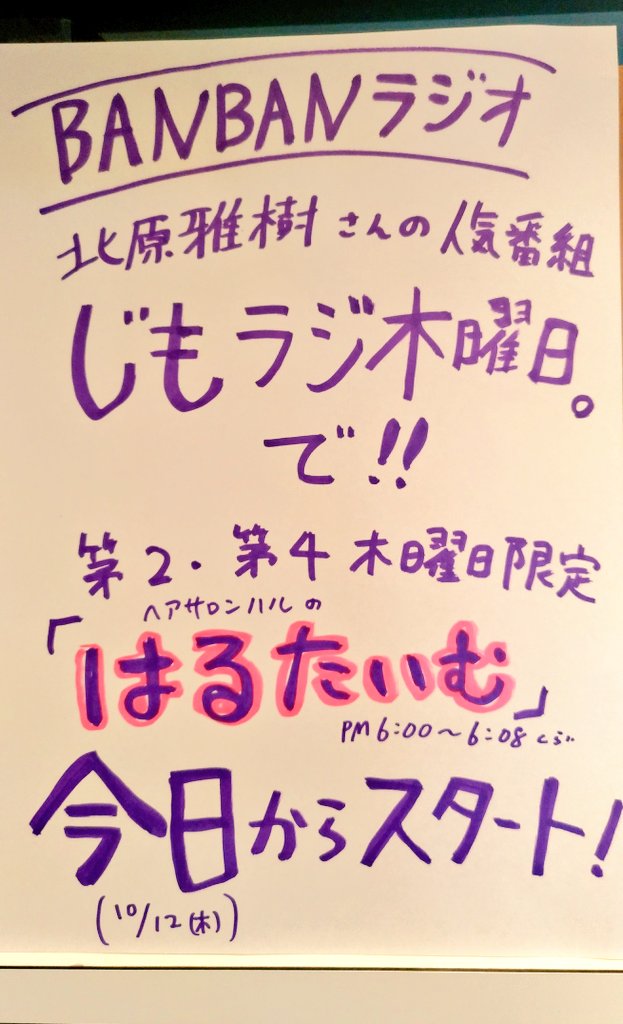 BANBANラジオ
北原雅樹さんの人気番組
じもラジ木曜日。
で!!
第2・第4木曜日限定
ヘアサロンハルの
「はるたいむ」
PM6:00〜6:08くらい
今日からスタート!
(10/12(木))